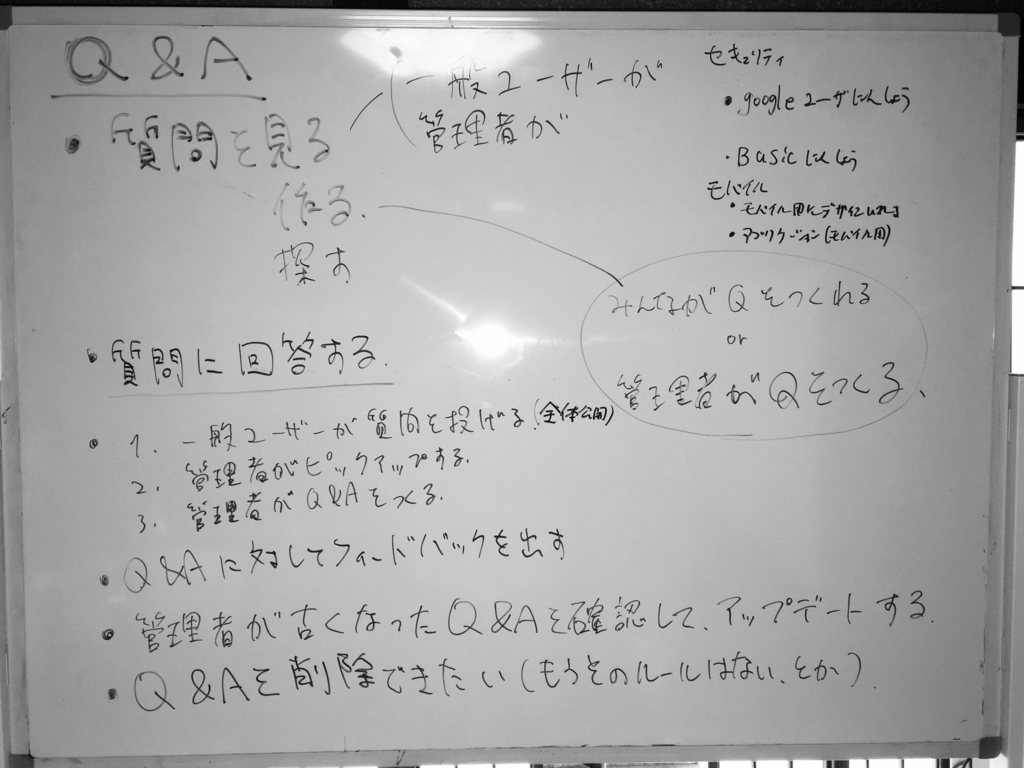 Q & A
・質問を見る
作る.
探す.
一般ユーザーが
管理者が
セキュリティ
・googleユーザにんしょう
・Basicにんしょう
モバイル
・モバイル用に デザイン
・アプリケーション(モバイル用)
みんながQをつくれる
or
管理者がQをつくる、
・質問に回答する.
・1. 一般ユーザーが質問を投げる.(全体公開)
2. 管理者がピックアップする.
3. 管理者がQ&Aをつくる.
・Q&Aに対してフィードバックを出す
・管理者が古くなったQ&Aを確認して、アップデートする.
・Q&Aを削除できたい(もうそのルールはない、とか).